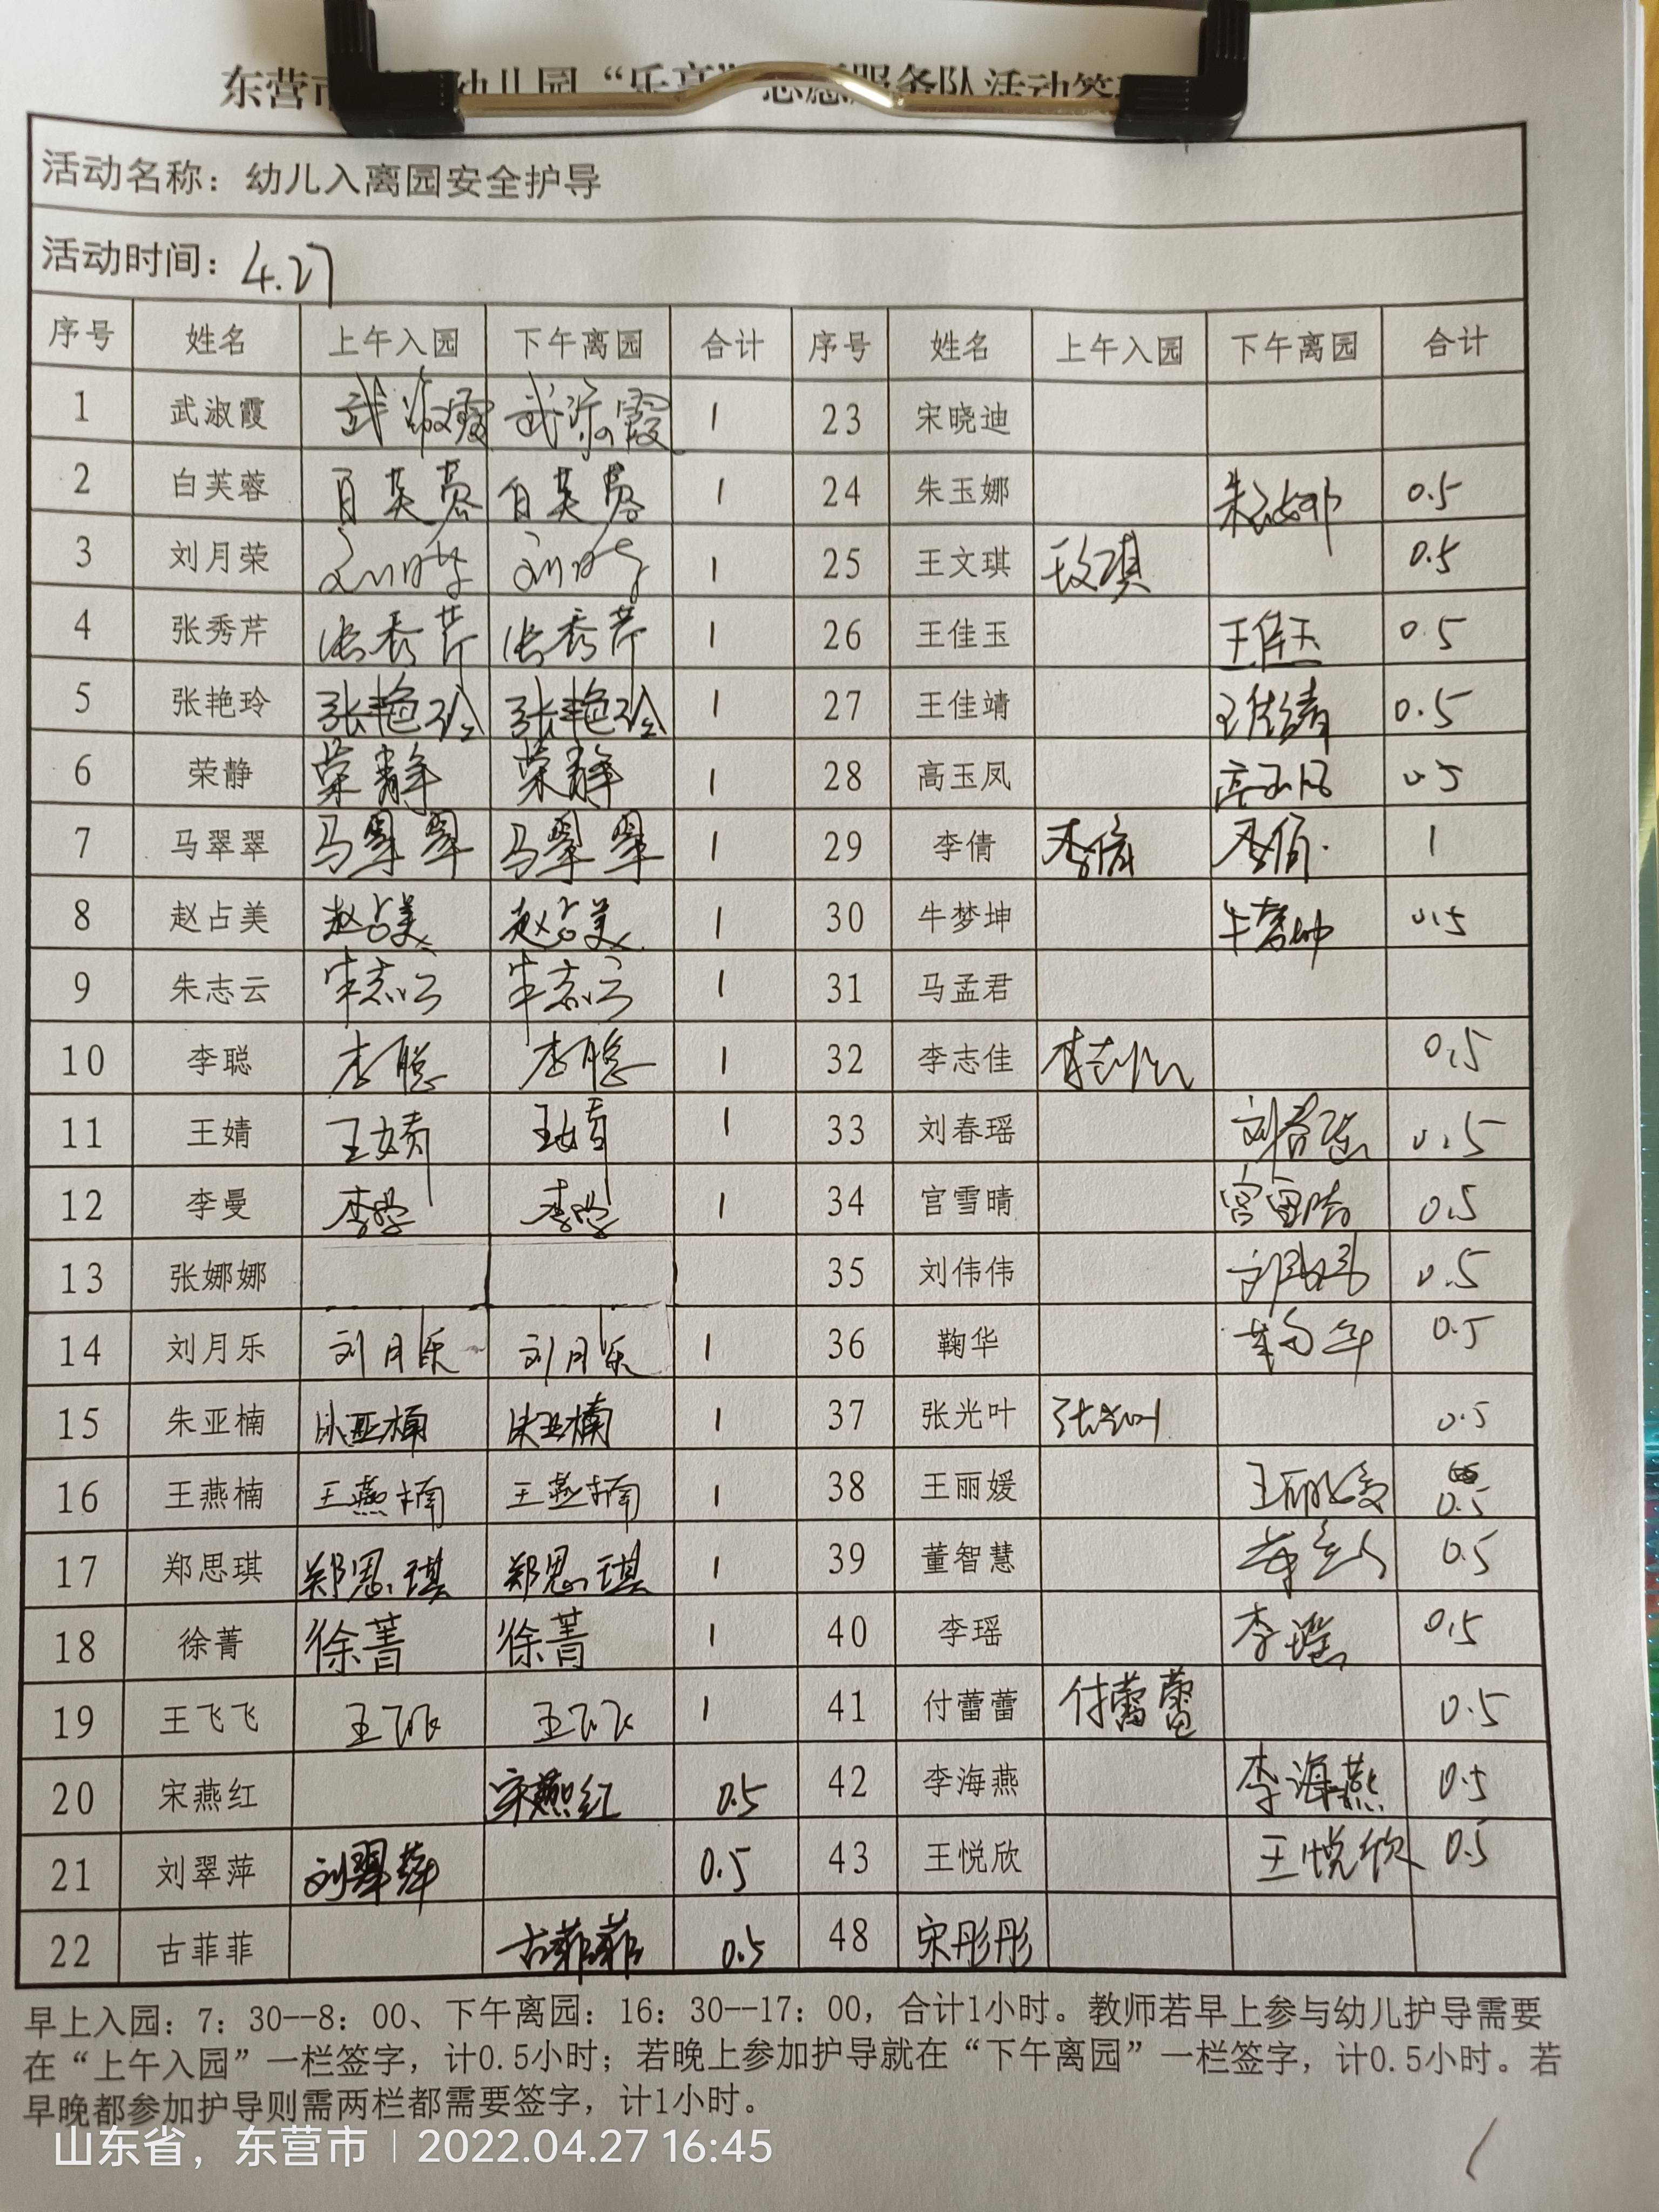 东营市 幼儿园“乐享”志愿服务队活动签
活动名称：幼儿入离园安全护导
活动时间：4.27
序号 姓名 上午入园 下午离园 合计 序号 姓名 上午入园 下午离园 合计
1 武淑霞 武淑霞 武淑霞 1 23 宋晓迪
2 白芙蓉 白芙蓉 白芙蓉 1 24 朱玉娜 朱玉娜 0.5
3 刘月荣 刘月荣 刘月荣 1 25 王文琪 王文琪 0.5
4 张秀芹 张秀芹 张秀芹 1 26 王佳玉 王佳玉 0.5
5 张艳玲 张艳玲 张艳玲 1 27 王佳靖 王佳靖 0.5
6 荣静 荣静 荣静 1 28 高玉凤 高玉凤 0.5
7 马翠翠 马翠翠 马翠翠 1 29 李倩 李倩 李倩 1
8 赵占美 赵占美 赵占美 1 30 牛梦坤 牛梦坤 0.5
9 朱志云 朱志云 朱志云 1 31 马孟君
10 李聪 李聪 李聪 1 32 李志佳 李志佳 0.5
11 王婧 王婧 王婧 1 33 刘春瑶 刘春瑶 0.5
12 李曼 李曼 李曼 1 34 宫雪晴 宫雪晴 0.5
13 张娜娜 35 刘伟伟 0.5
14 刘月乐 刘月乐 刘月乐 1 36 鞠华 鞠华 0.5
15 朱亚楠 朱亚楠 朱亚楠 1 37 张光叶 张光叶 0.5
16 王燕楠 王燕楠 王燕楠 1 38 王丽媛 王丽媛 0.5
17 郑思琪 郑思琪 郑思琪 1 39 董智慧 0.5
18 徐菁 徐菁 徐菁 1 40 李瑶 李瑶 0.5
19 王飞飞 王飞飞 王飞飞 1 41 付蕾蕾 付蕾蕾 0.5
20 宋燕红 宋燕红 0.5 42 李海燕 李海燕 0.5
21 刘翠萍 刘翠萍 0.5 43 王悦欣 王悦欣 0.5
22 古菲菲 古菲菲 0.5 48 宋彤彤
早上入园：7：30--8：00、下午离园：16：30--17：00，合计1小时。教师若早上参与幼儿护导需要
在“上午入园”一栏签字，计0.5小时；若晚上参加护导就在“下午离园”一栏签字，计0.5小时。若
早晚都参加护导则需两栏都需要签字，计1小时。
山东省，东营市 | 2022.04.27 16:45